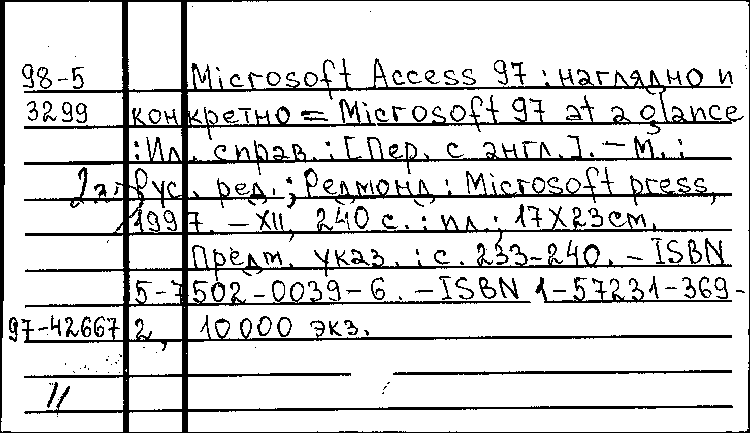 98-5 Microsoft Access 97 : наглядно и
3299 конкретно = Microsoft 97 at a glance
: Ил. справ. : [Пер. с англ.]. – М. :
2 эк. Рус. ред. ; Редмонд : Microsoft press,
1997. – XII, 240 с. : ил. ; 17X23 см.
Предм. указ. : с. 233-240. – ISBN
5-7502-0039-6. – ISBN 1-57231-369-
97-42667 2, 10000 экз.